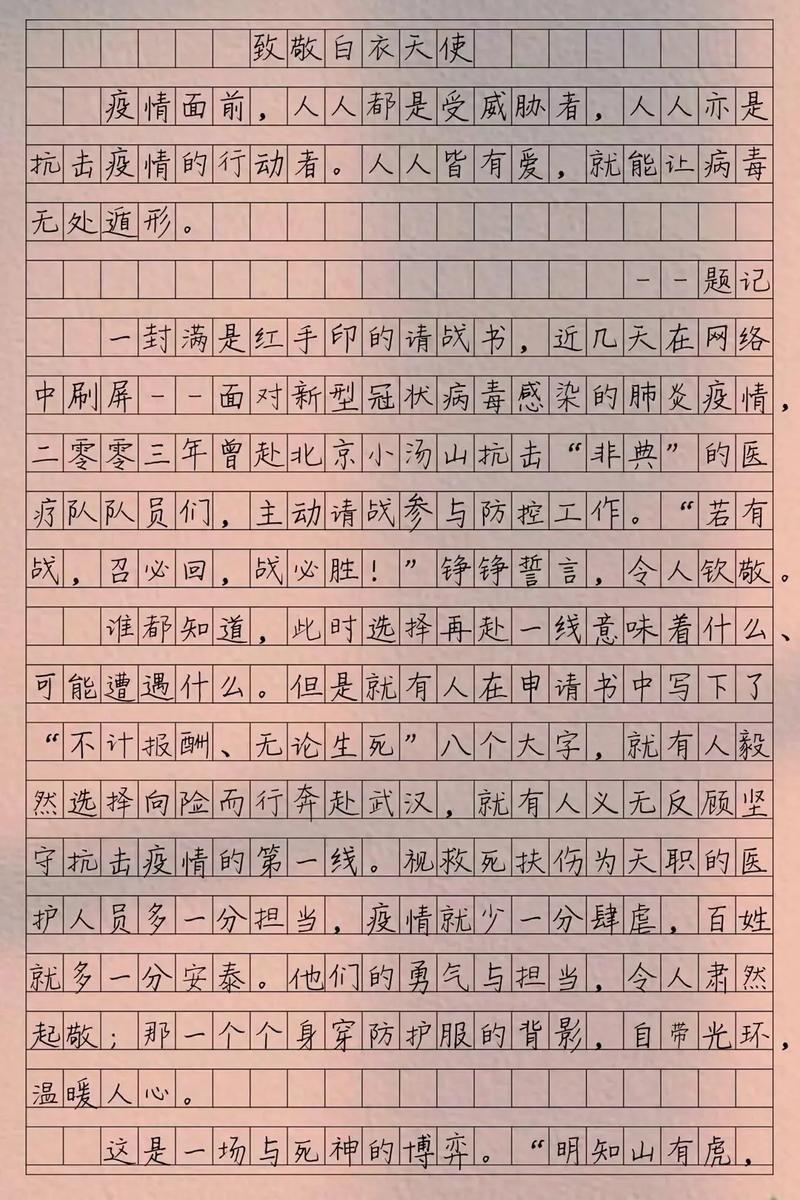 致敬白衣天使
疫情面前，人人都是受威胁者，人人亦是
抗击疫情的行动者。人人皆有爱，就能让病毒
无处遁形。
--题记
一封满是红手印的请战书，近几天在网络
中刷屏--面对新型冠状病毒感染的肺炎疫情，
二零零三年曾赴北京小汤山抗击“非典”的医
疗队队员们，主动请战参与防控工作。“若有
战，召必回，战必胜！”铮铮誓言，令人钦敬。
谁都知道，此时选择再赴一线意味着什么、
可能遭遇什么。但是就有人在申请书中写下了
“不计报酬、无论生死”八个大字，就有人毅
然选择向险而行奔赴武汉，就有人义无反顾坚
守抗击疫情的第一线。视救死扶伤为天职的医
护人员多一分担当，疫情就少一分肆虐，百姓
就多一分安泰。他们的勇气与担当，令人肃然
起敬；那一个个身穿防护服的背影，自带光环，
温暖人心。
这是一场与死神的博弈。“明知山有虎，